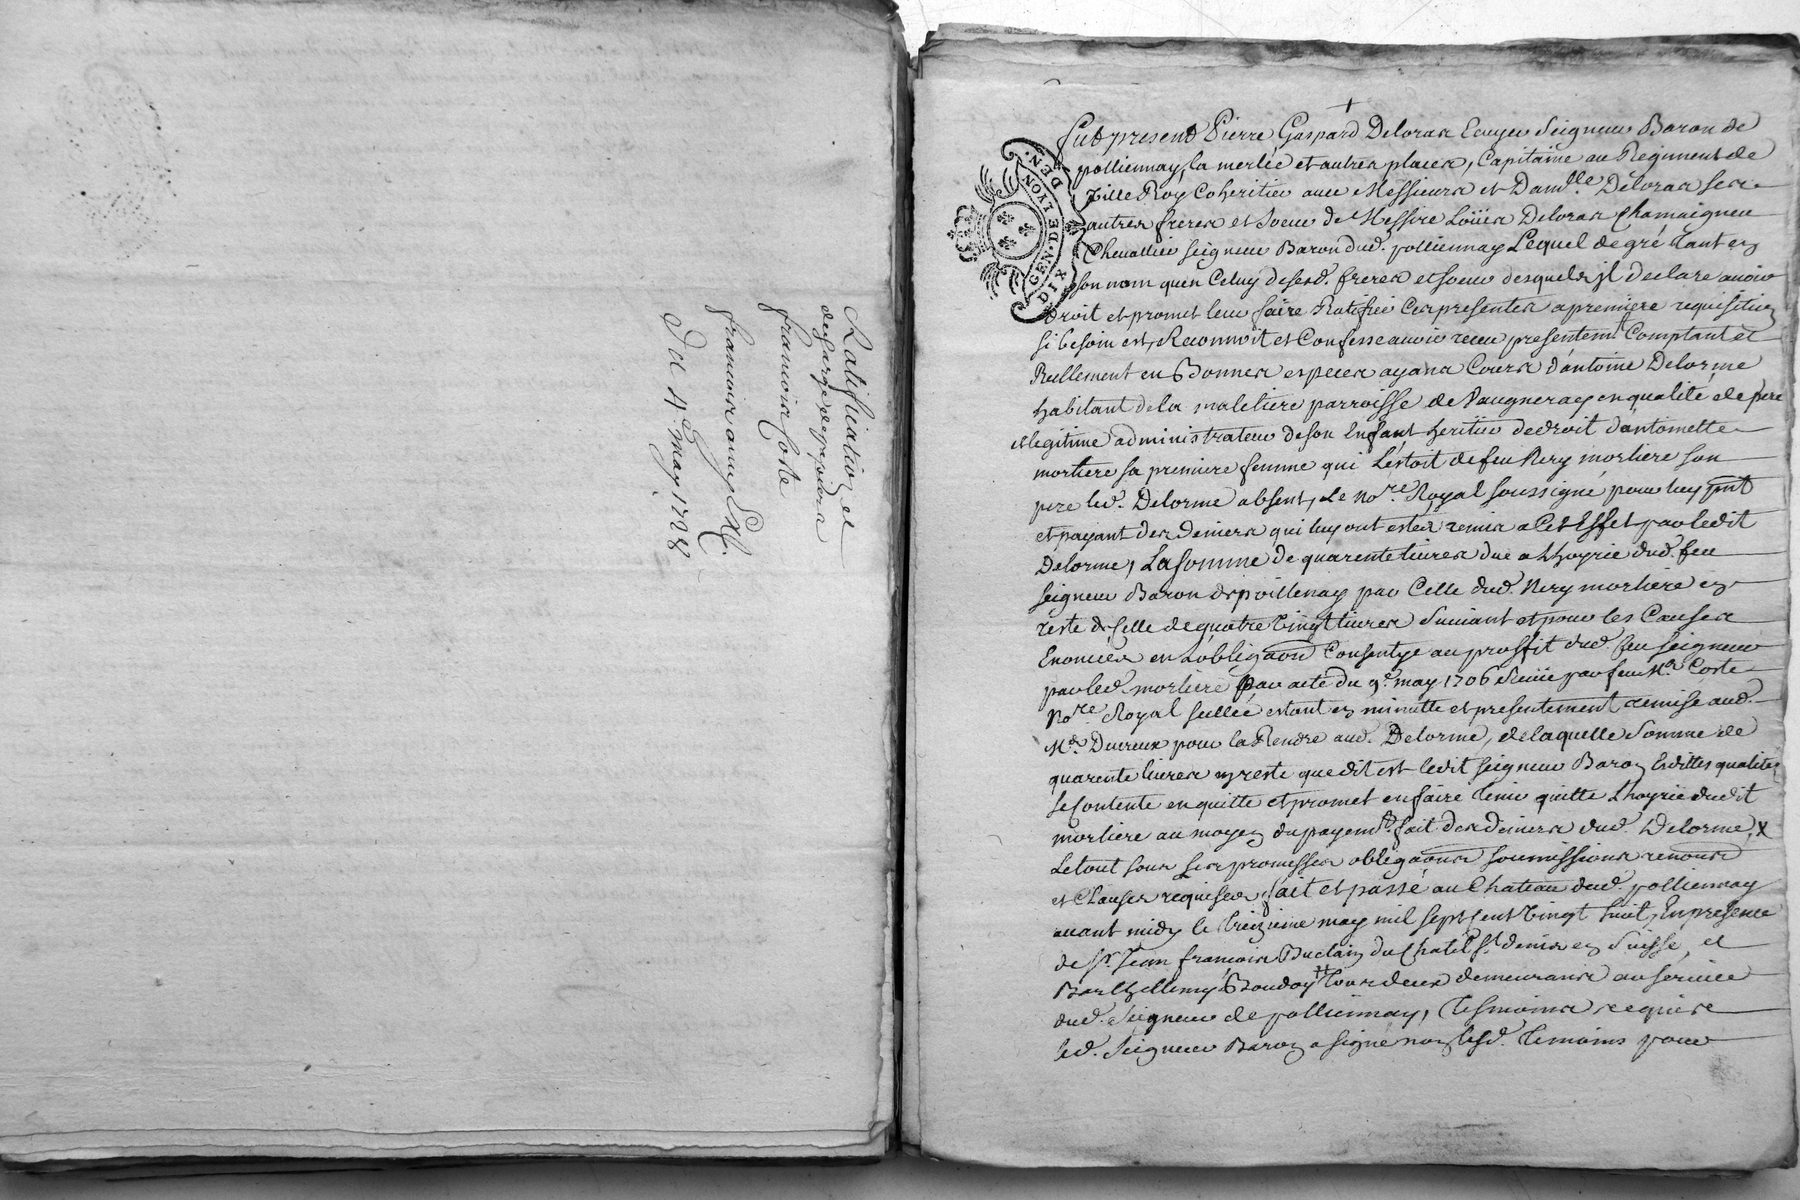 Ratification et
descharge depupilera
francoise Coste
francoise aunex M.
Du 4e may 1728
GEN. DE LYON.
DIX DEN.
Fut present Pierre Gaspard Deloras Ecuyer Seigneur Baron de
pollionnay, la merlée et autres places, Capitaine au Regiment de
Ville Roy Coheritier avec Messieurs et Damlle. Deloras ses
autres freres et Soeur de Messire Loüis Deloras Chamaigneu
Chevallier seigneur Baron dud. pollionnay Lequel degré tant en
son nom quen Celuy desesd. freres et soeur desquels jl declare avoir
droit et promet leur faire Ratifier Cespresentes apremiere requisition
si besoin est, Reconnoit et Confesse avoir receu presentemt. Comptant et
Reellement en Bonnes especes ayans Cours d'antoine Delorme
habitant dela maletiere parroisse de Vaugneray en qualité de pere
et legitime administrateur deson Enfant heritier dedroit dantoinette
morliere sa premiere femme qui Lestoit defeu Nery morliere son
pere led. Delorme absent, Le nore. Royal soussigné pour luy pnt
et payant des deniers qui luy ont estés remis a Cet Effet par ledit
Delorme, La somme de quarente livres due a Lhoyrie dud. feu
seigneur Baron de pollionnay par Celle dud. Nery morliere en
reste de Celle de quatre Vingt livres Suivant et pour les Causes
Enoncées en Lobligaon Consentye au proffit dud. feu seigneur
par led. morliere par acte du 9e. may 1706 Receüe par feu Me. Coste
Nore. Royal sellée estant en minutte et presentement remise aud.
Me. Ducreux pour la Rendre aud. Delorme, de laquelle Somme de
quarente livres en reste que dit est ledit seigneur Baron Esdittes qualites
se Contente en quitte et promet en faire Tenir quitte Lhoyrie dudit
morliere au moyen du payemt. fait des deniers dud. Delorme, x
Letout sous ses promesses obligaons soumissions renons
et Clauses requises, fait et passé au Chateau dud. pollionnay
avant midy le treizieme may mil sept Cent Vingt huit, En presence
de Sr. Jean francois Buclain du Chatel St. denis en Suisse, et
Barthellemy Boudoy Tous deux demeurans au service
dud. Seigneur de pollionnay, Tesmoins requis
led. Seigneur Baron a signé non lesd. Temoins pour